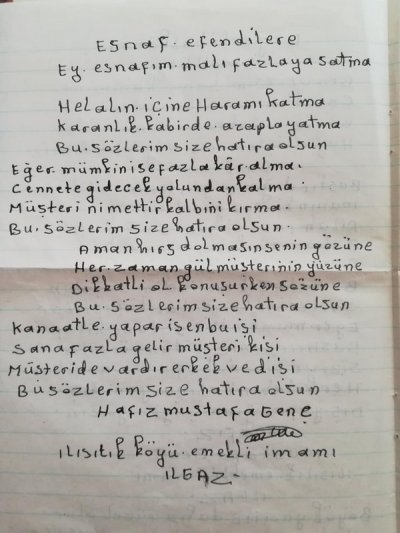 Esnaf. efendilere
Ey. esnafım. malı fazlaya satma
Helalın. içine Haramı katma
Karanlık. kabirde. azapla yatma
Bu. sözlerim size hatıra olsun
Eğer. mümkin ise fazla kâr. alma.
Cennete gidecek yolundan kalma.
Müşteri nimettir kalbini kırma.
Bu. sözlerim size hatıra olsun.
Aman hırs dolmasın senin gözüne
Her. zaman gül müşterinin yüzüne
Dikkatli ol konuşurken sözüne
Bu. sözlerim size hatıra olsun
Kanaatle. yapar isen bu işi
Sana fazla gelir müşteri kişi
Müşteride vardır erkek ve dişi
Bu sözlerim size hatıra olsun
Hafız mustafa Genç
ılısılık köyü. emekli imamı
ILGAZ-